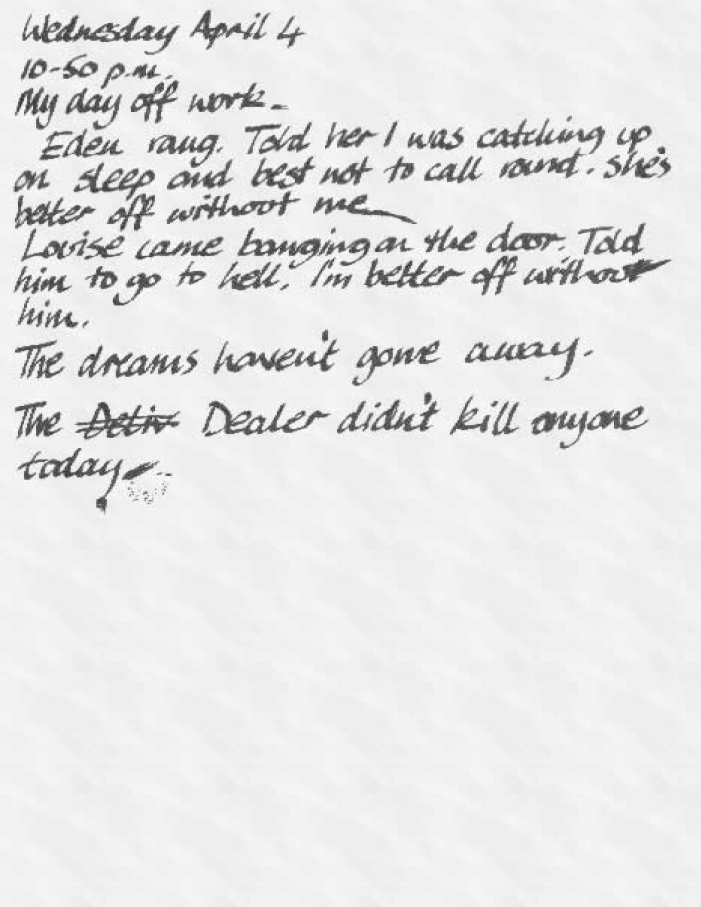 Wednesday April 4
10-50 p.m.
My day off work.
Eden rang. Told her I was catching up
on sleep and best not to call round. She's
better off without me
Louise came banging on the door. Told
him to go to hell. I'm better off without
him.
The dreams haven't gone away.
The Deliv Dealer didn't kill anyone
today